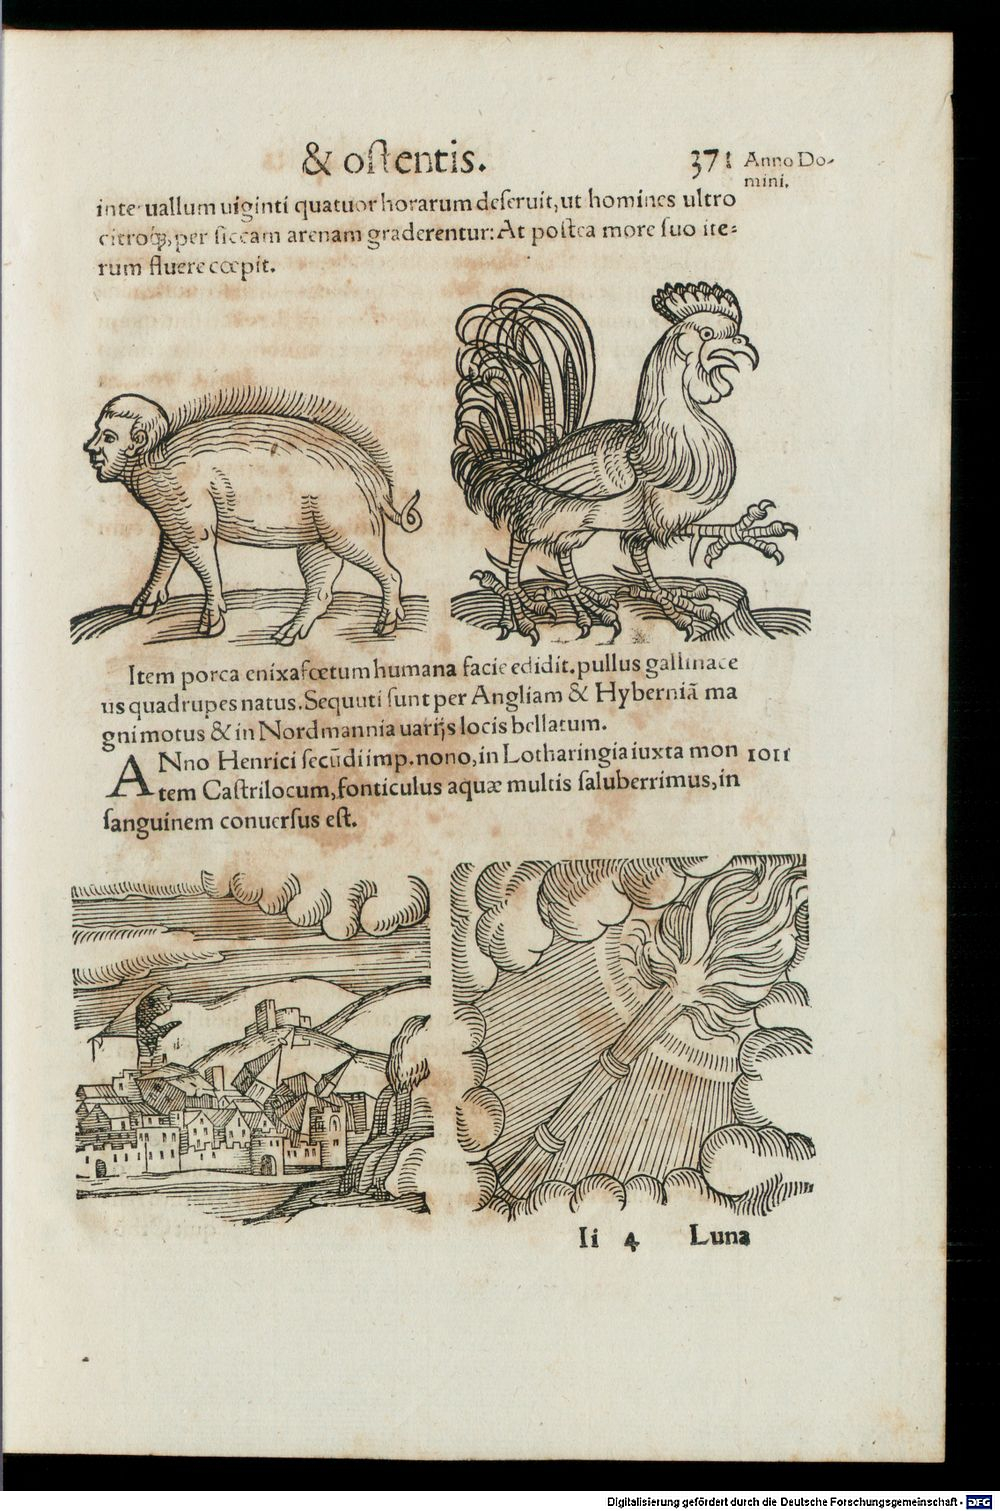 & oſtentis. 371 Anno Do-
mini.
interuallum uiginti quatuor horarum deſeruit, ut homines ultro
citroq́;, per ſiccam arenam graderentur: At poſtea more ſuo ite=
rum fluere cœpit.
Item porca enixa fœtum humana facie edidit. pullus gallinace
us quadrupes natus. Sequuti ſunt per Angliam & Hyberniã ma
gni motus & in Nordmannia uarijs locis bellatum.
ANno Henrici ſecũdi imp. nono, in Lotharingia iuxta mon 1011
tem Caſtrilocum, fonticulus aquæ multis ſaluberrimus, in
ſanguinem conuerſus eſt.
Ii 4 Luna
Digitalisierung gefördert durch die Deutsche Forschungsgemeinschaft - DFG